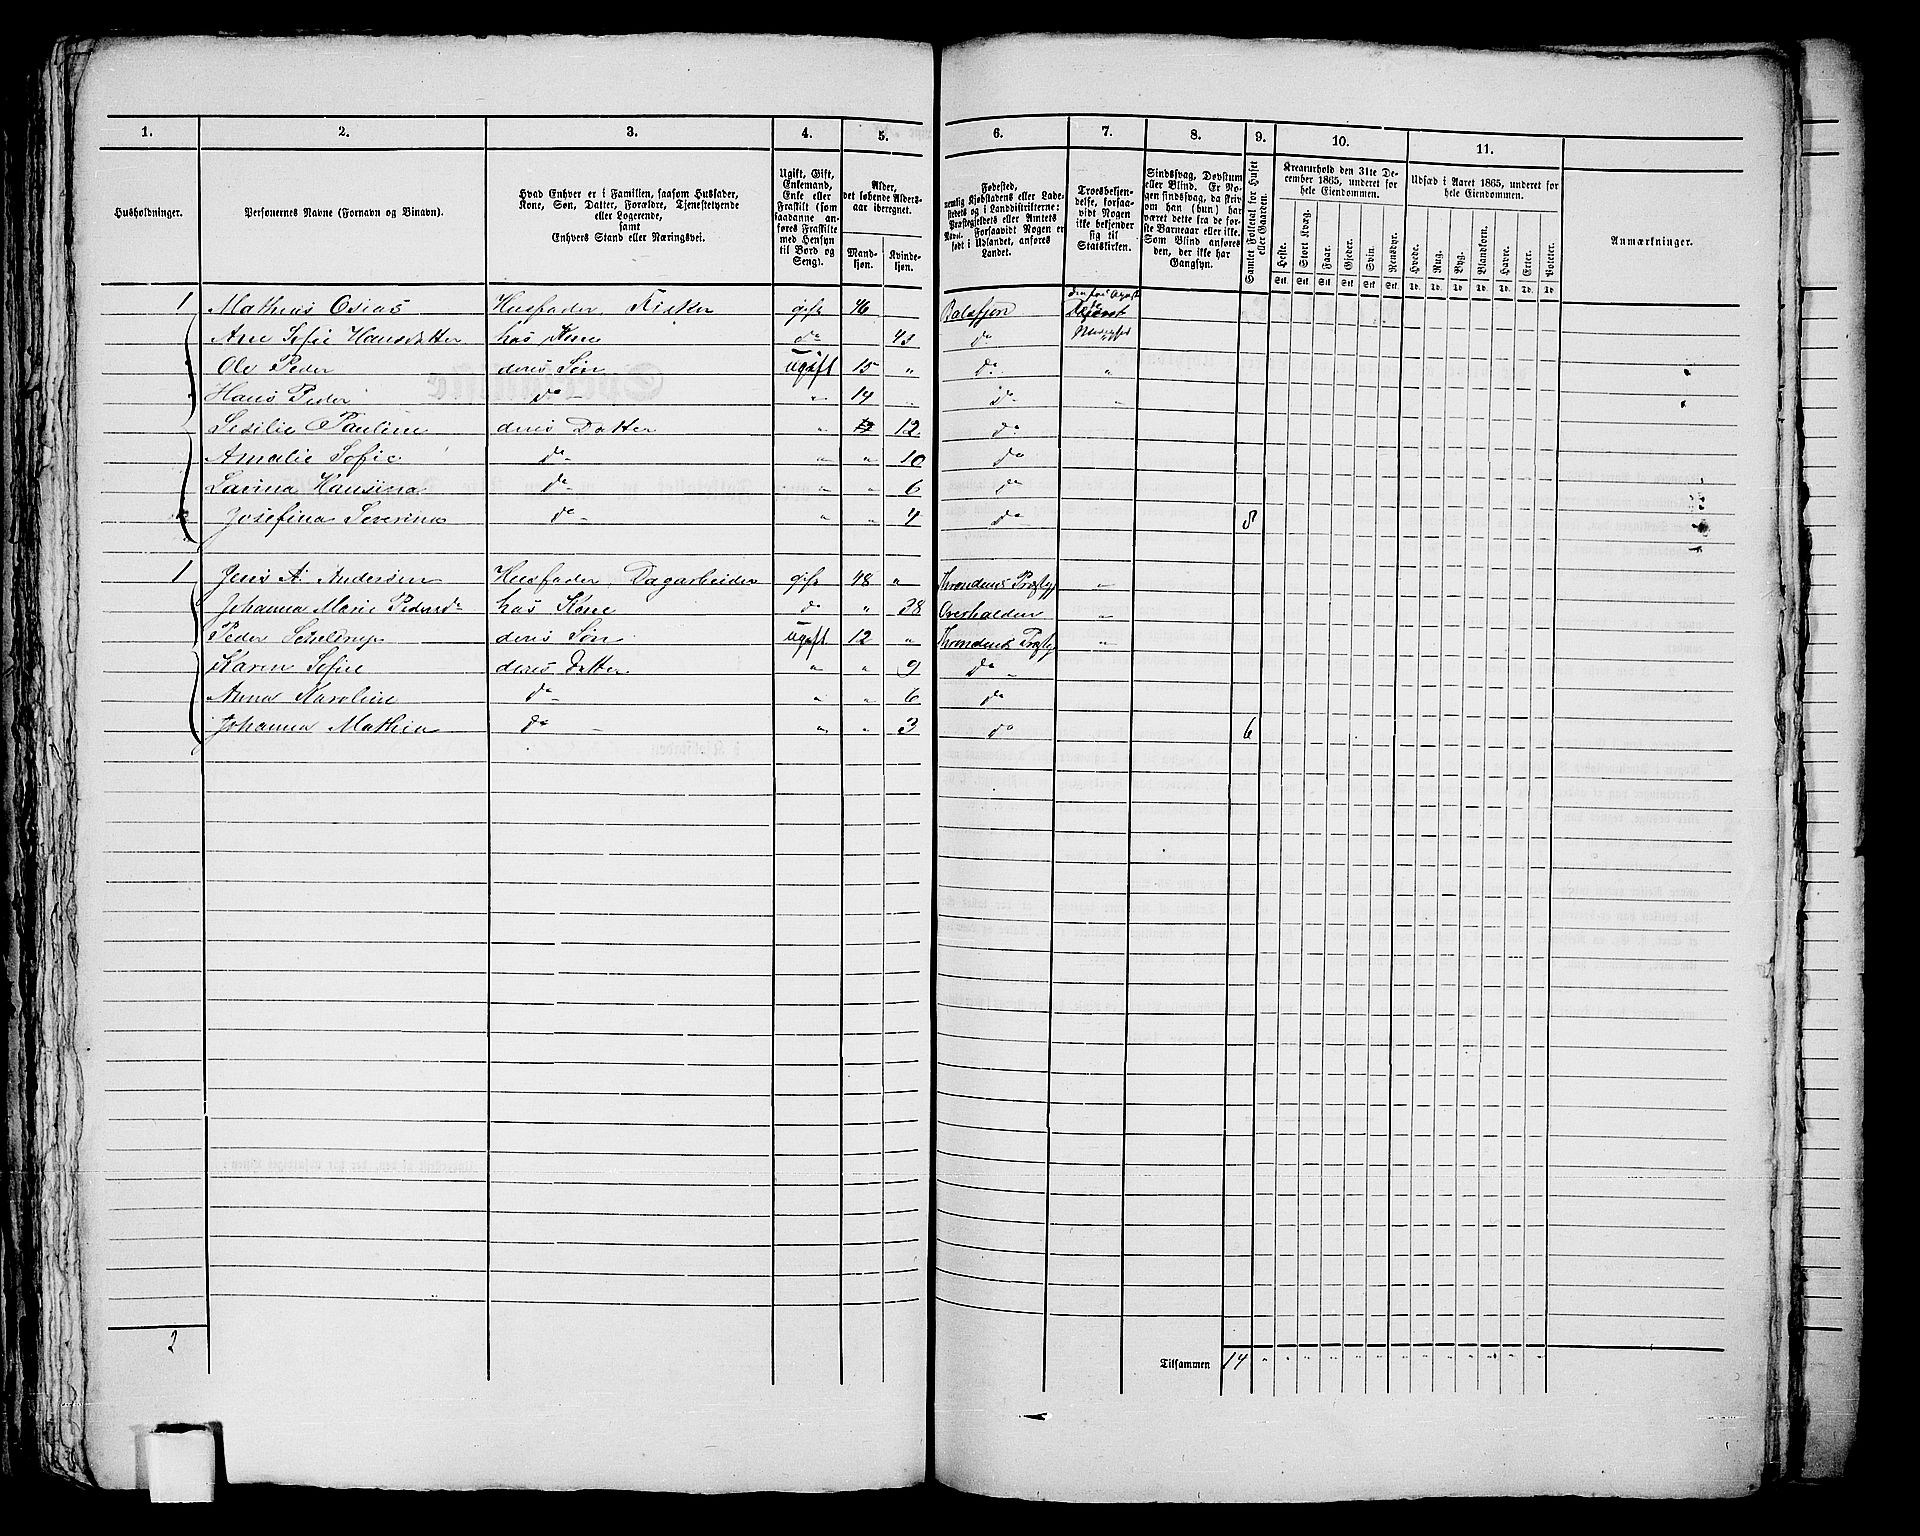 1. 2. 3. 4. 5. 6. 7. 8. 9. 10. 11.
Husholdninger.
Personernes Navne (Fornavn og Binavn).
Hvad Enhver er i Familien, saasom Husfader,
Kone, Søn, Datter, Forældre, Tjenestetyende
eller Logerende,
samt
Enhvers Stand eller Næringsvei.
Ugift, Gift,
Enkemand,
Enke eller
Fraskilt (som
saadanne an-
føres Fraskilte
med Hensyn
til Bord og
Seng).
Alder,
det løbende Alders-
aar iberegnet.
Mand-
kjøn.
Kvinde-
kjøn.
Fødested,
nemlig Kjøbstadens eller Lade-
stedets og i Landdistrikterne:
Præstegjeldets eller Amtets
Navn. Forsaavidt Nogen er
født i Udlandet, anføres
Landet.
Troesbekjen-
delse, forsaa-
vidt Nogen
ikke bekjender
sig til
Statskirken.
Sindssvag, Døvstum
eller Blind. Er No-
gen sindssvag, da skriv
om han (hun) har
været dette fra de før-
ste Barneaar eller ikke.
Som Blind anføres
den, der ikke har
Gangsyn.
Samlet Folketal for Huset
eller Gaarden.
Kreaturhold den 31te De-
cember 1865, underet for
hele Eiendommen.
Heste. Stort Kvæg. Faar. Gjeder. Svin. Rensdyr.
Stk. Stk. Stk. Stk. Stk. Stk.
Udsæd i Aaret 1865, underet for
hele Eiendommen.
Hvede. Rug. Byg. Blandkorn. Havre. Erter. Poteter.
Td. Td. Td. Td. Td. Td. Td.
Anmærkninger.
1 Mathias Osias Husfader, Fisker gift 46 Balsfjon
Ane Sofie Hansdatter hós Kone do 43 do
Ole Peder deres Søn ugift 15 " do "
Hans Peder do - " 14 do "
Sesilie Pauline deres Datter " 12 do
Amalie Sofie do - " " 10 do
Lavina Hansina do - " " 6 do
Josefina Severina do - " " 4 do 8
1 Jens A. Andersen Husfader, Dagarbeider gift 48 " Throndens Præstgj "
Johanna Marie Pedersd hós Kone do " 38 Overhalden "
Peder Scheldrup deres Søn ugift 12 " Throndens Præstgj "
Karen Sofie deres Datter " " 9 do
Anna Karoline do - " " 6 do
Johanna Mathea do - " " 3 do 6
2
Tilsammen 14 " " " " " " " " " " " " "